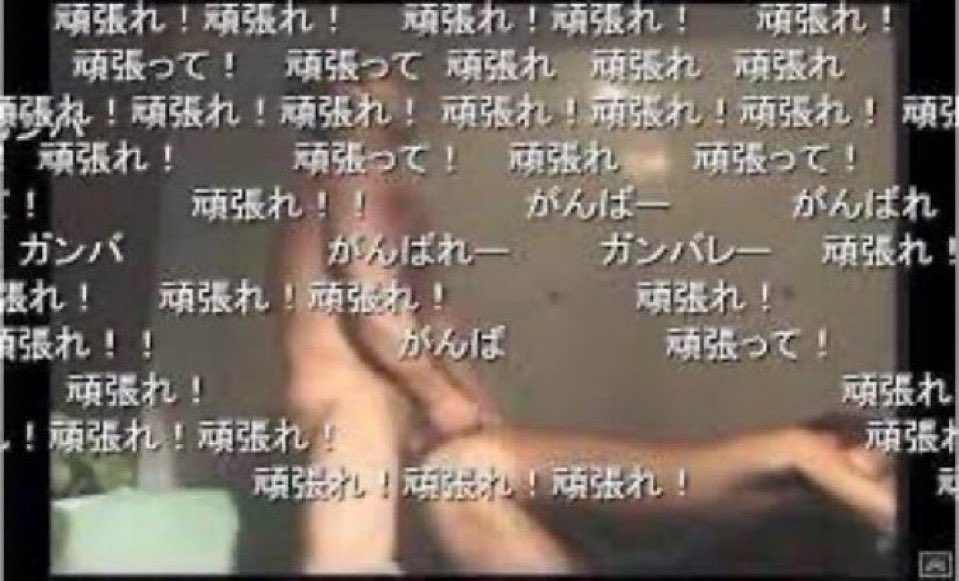 頑張れ！頑張れ！ 頑張れ！頑張れ！ 頑張れ！
頑張って！ 頑張って 頑張れ 頑張れ 頑張れ
頑張れ！頑張れ！頑張れ！ 頑張れ！頑張れ！頑張れ！ 頑張
ガンバ
頑張れ！ 頑張って！ 頑張れ 頑張って！
て！ 頑張れ！！ がんばー がんばれ
ガンバ がんばれー ガンバレー 頑張れ！
張れ！ 頑張れ！頑張れ！ 頑張れ！
頑張れ！！ がんば 頑張って！
頑張れ！ 頑張れ
れ！頑張れ！頑張れ！ 頑張れ
頑張れ！頑張れ！頑張れ！